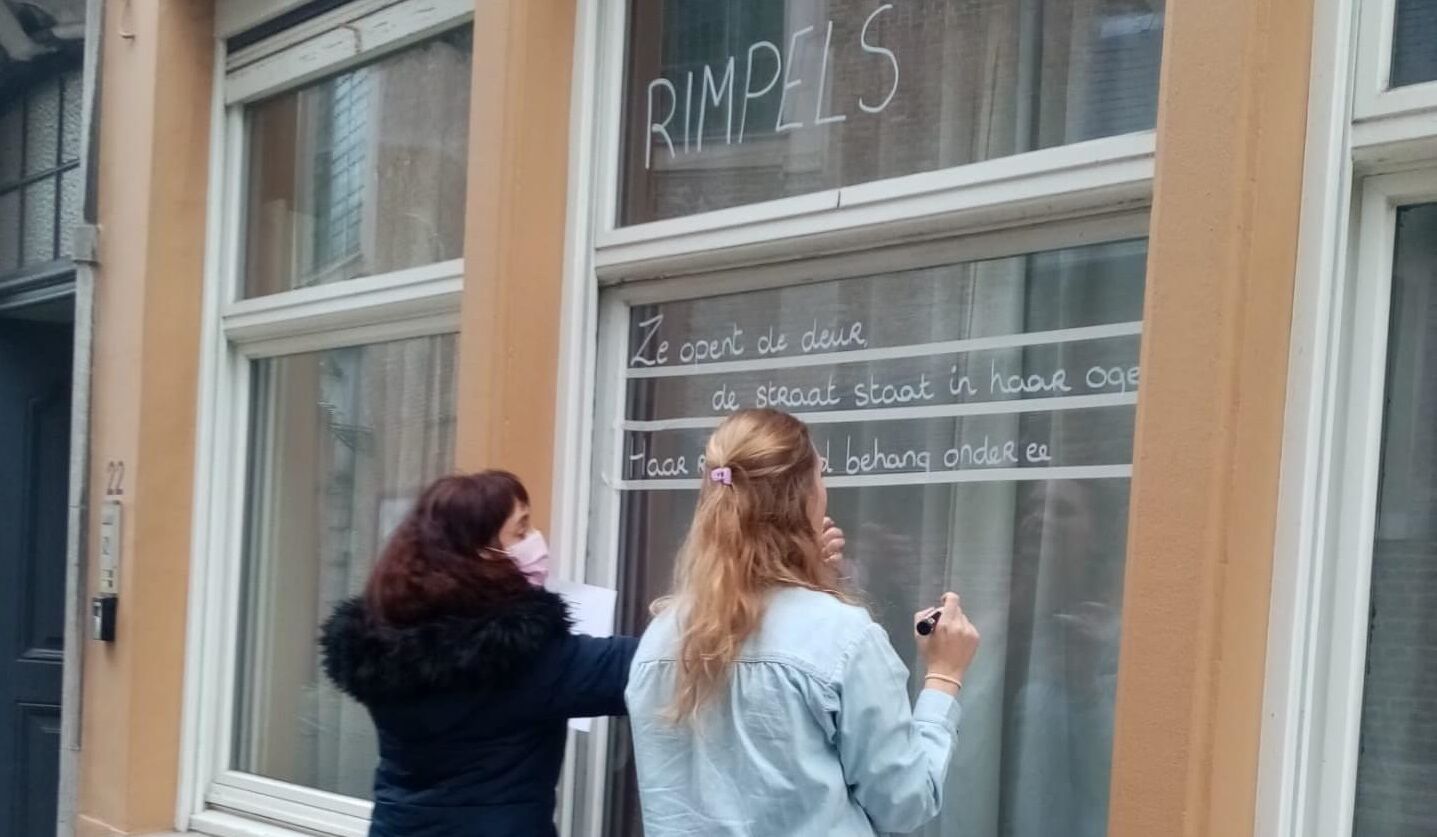 RIMPELS
Ze opent de deur,
de straat staat in haar oge
Haar behang onder ee
22